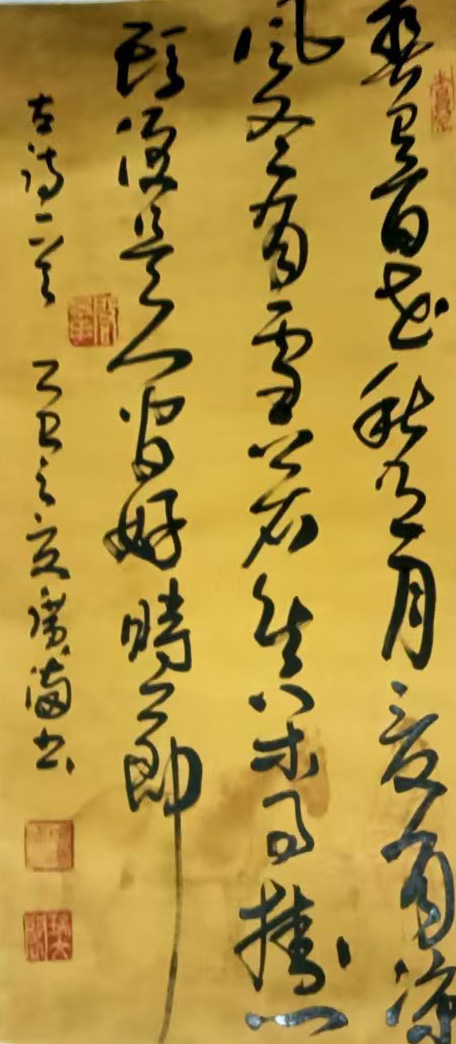 春有百花秋有月夏有涼
風冬有雪若無閑事掛心
頭便是人間好時節
古詩一首 己丑之夏書